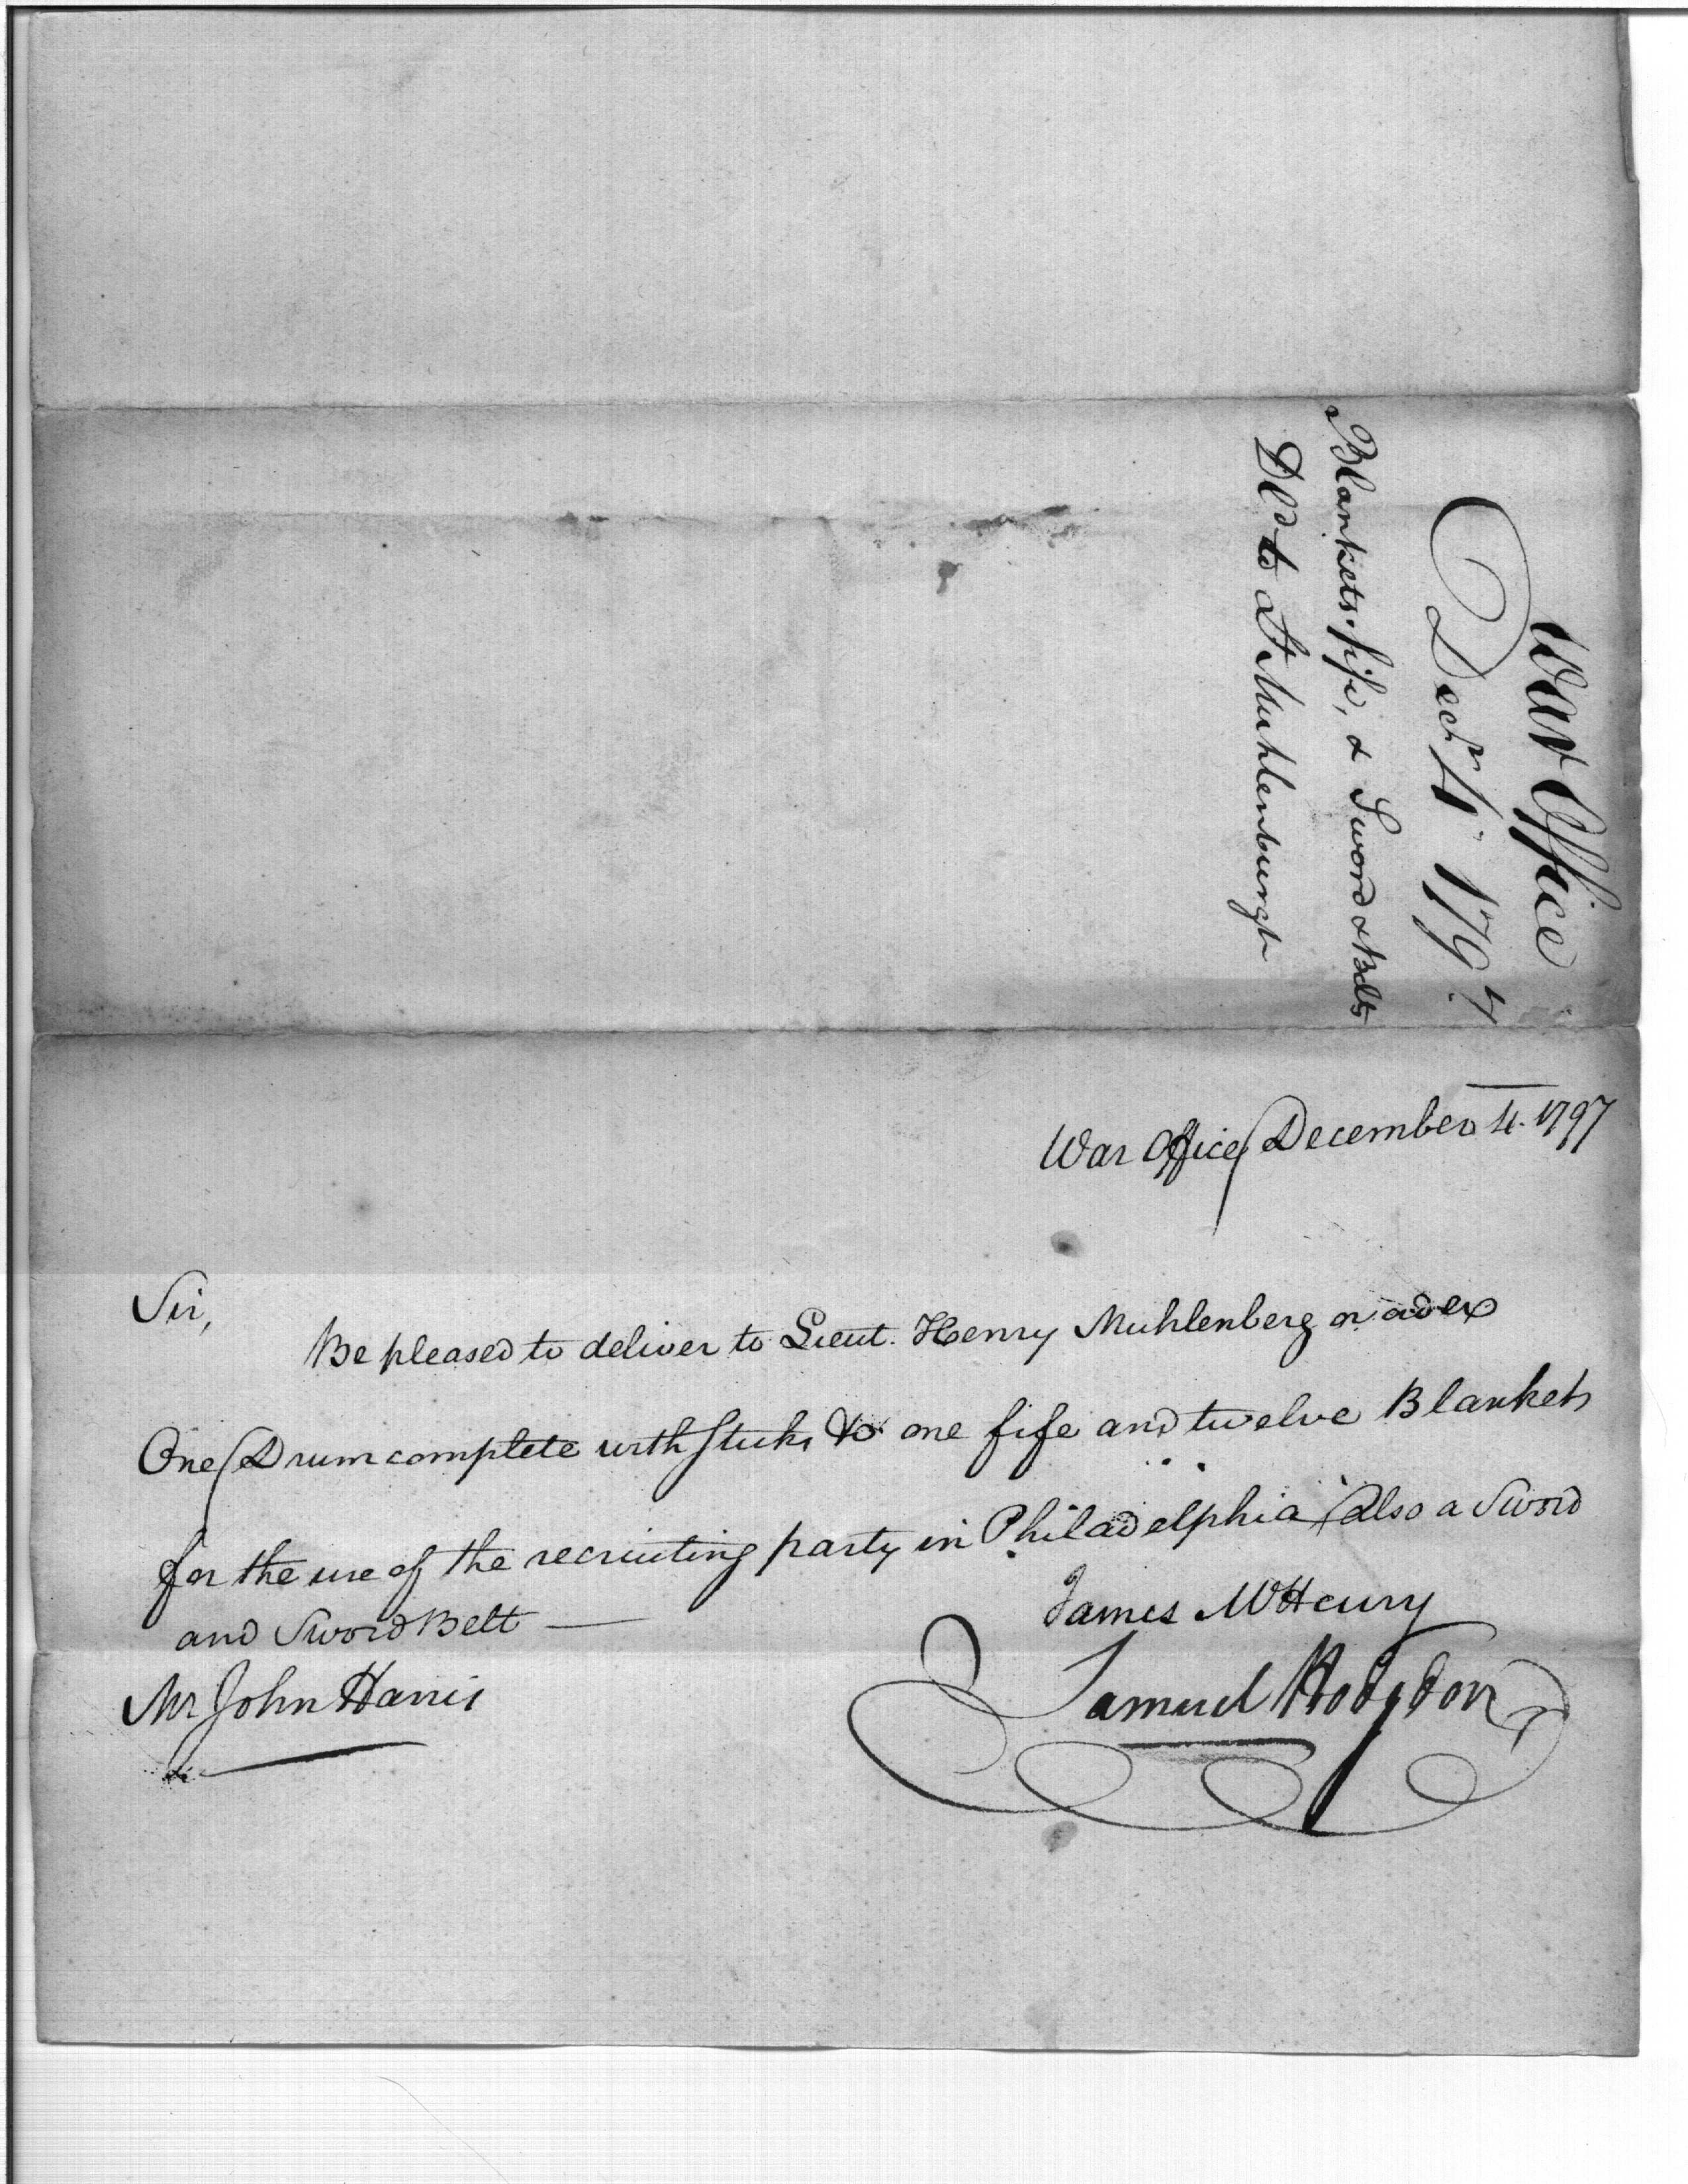 War Office
Decr. 4. 1797
Blankets, fife, & Sword & Belts
Dld to Lt Muhlenburgh
War Office December 4. 1797
Sir,
Be pleased to deliver to Lieut. Henry Muhlenberg or order
One Drum complete with Sticks &c one fife and twelve Blankets
for the use of the recruiting party in Philadelphia also a Sword
and Sword Belt
James McHenry
Mr John Harris
Samuel Hodgdon